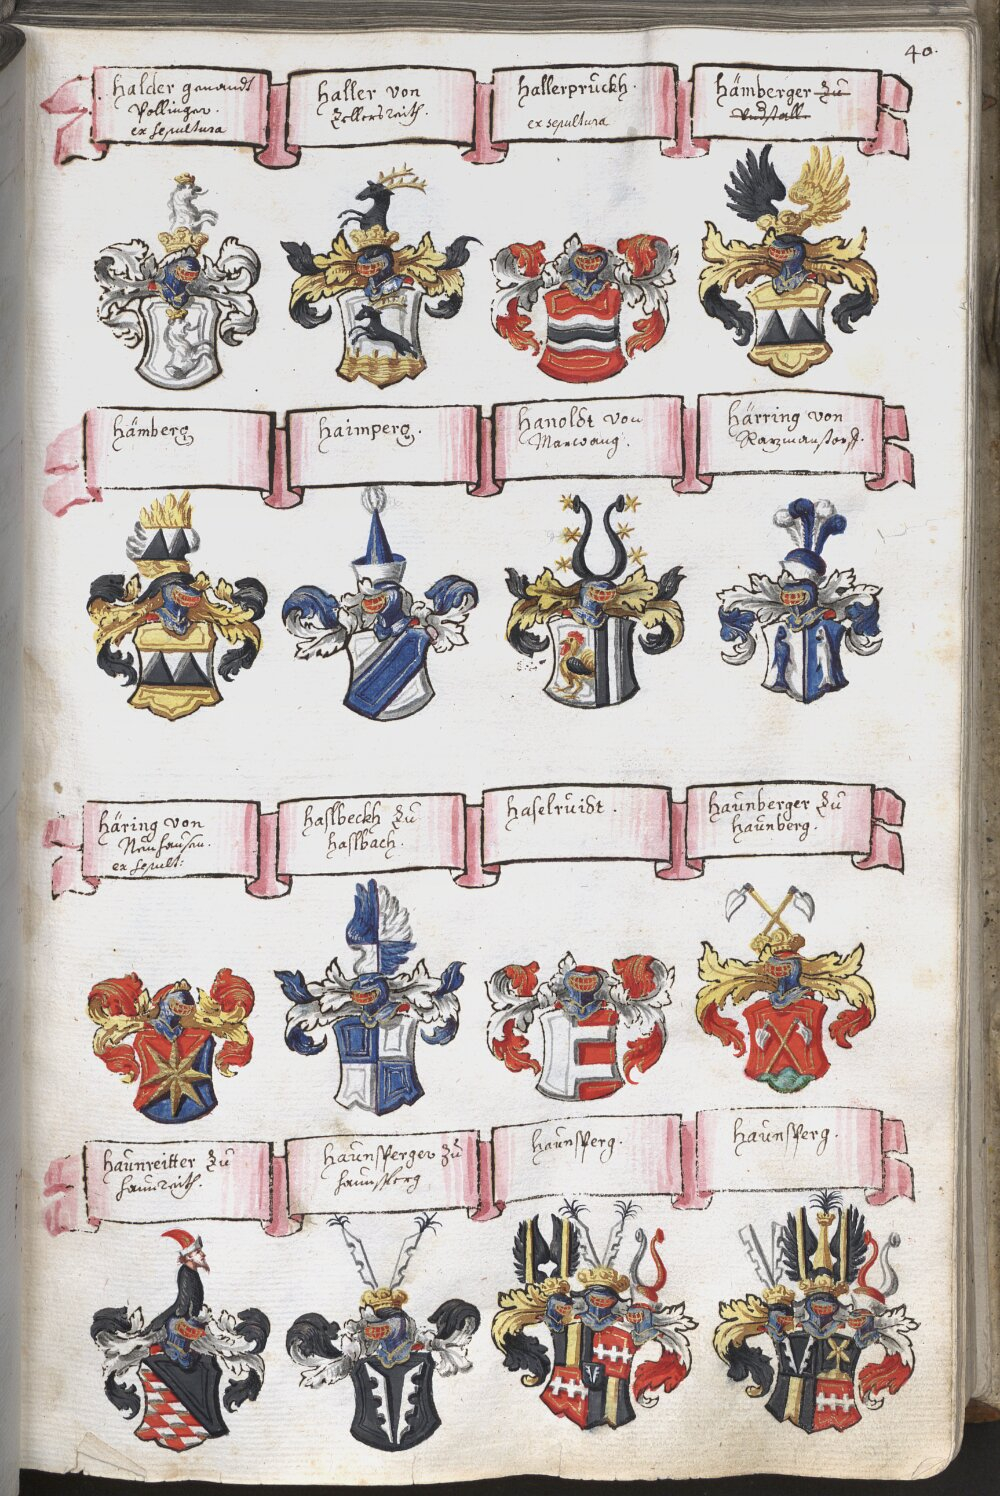 40.
Halder genandt
Pollinger.
ex sepultura
Haller von
Zellersreith.
Hallerpruckh.
ex sepultura
Hämberger zu
Hämberg
Haimperg.
Hanoldt von
Marwang.
Härring von
Karzmanstorff.
Häring von
Neuhausen.
ex sepult:
Haslbeckh zu
Haslbach.
Haselruidt.
Haunberger zu
Haunberg.
Haunreitter zu
Haunreith.
Haunsperger zu
Haunsperg
Haunsperg.
Haunsperg.